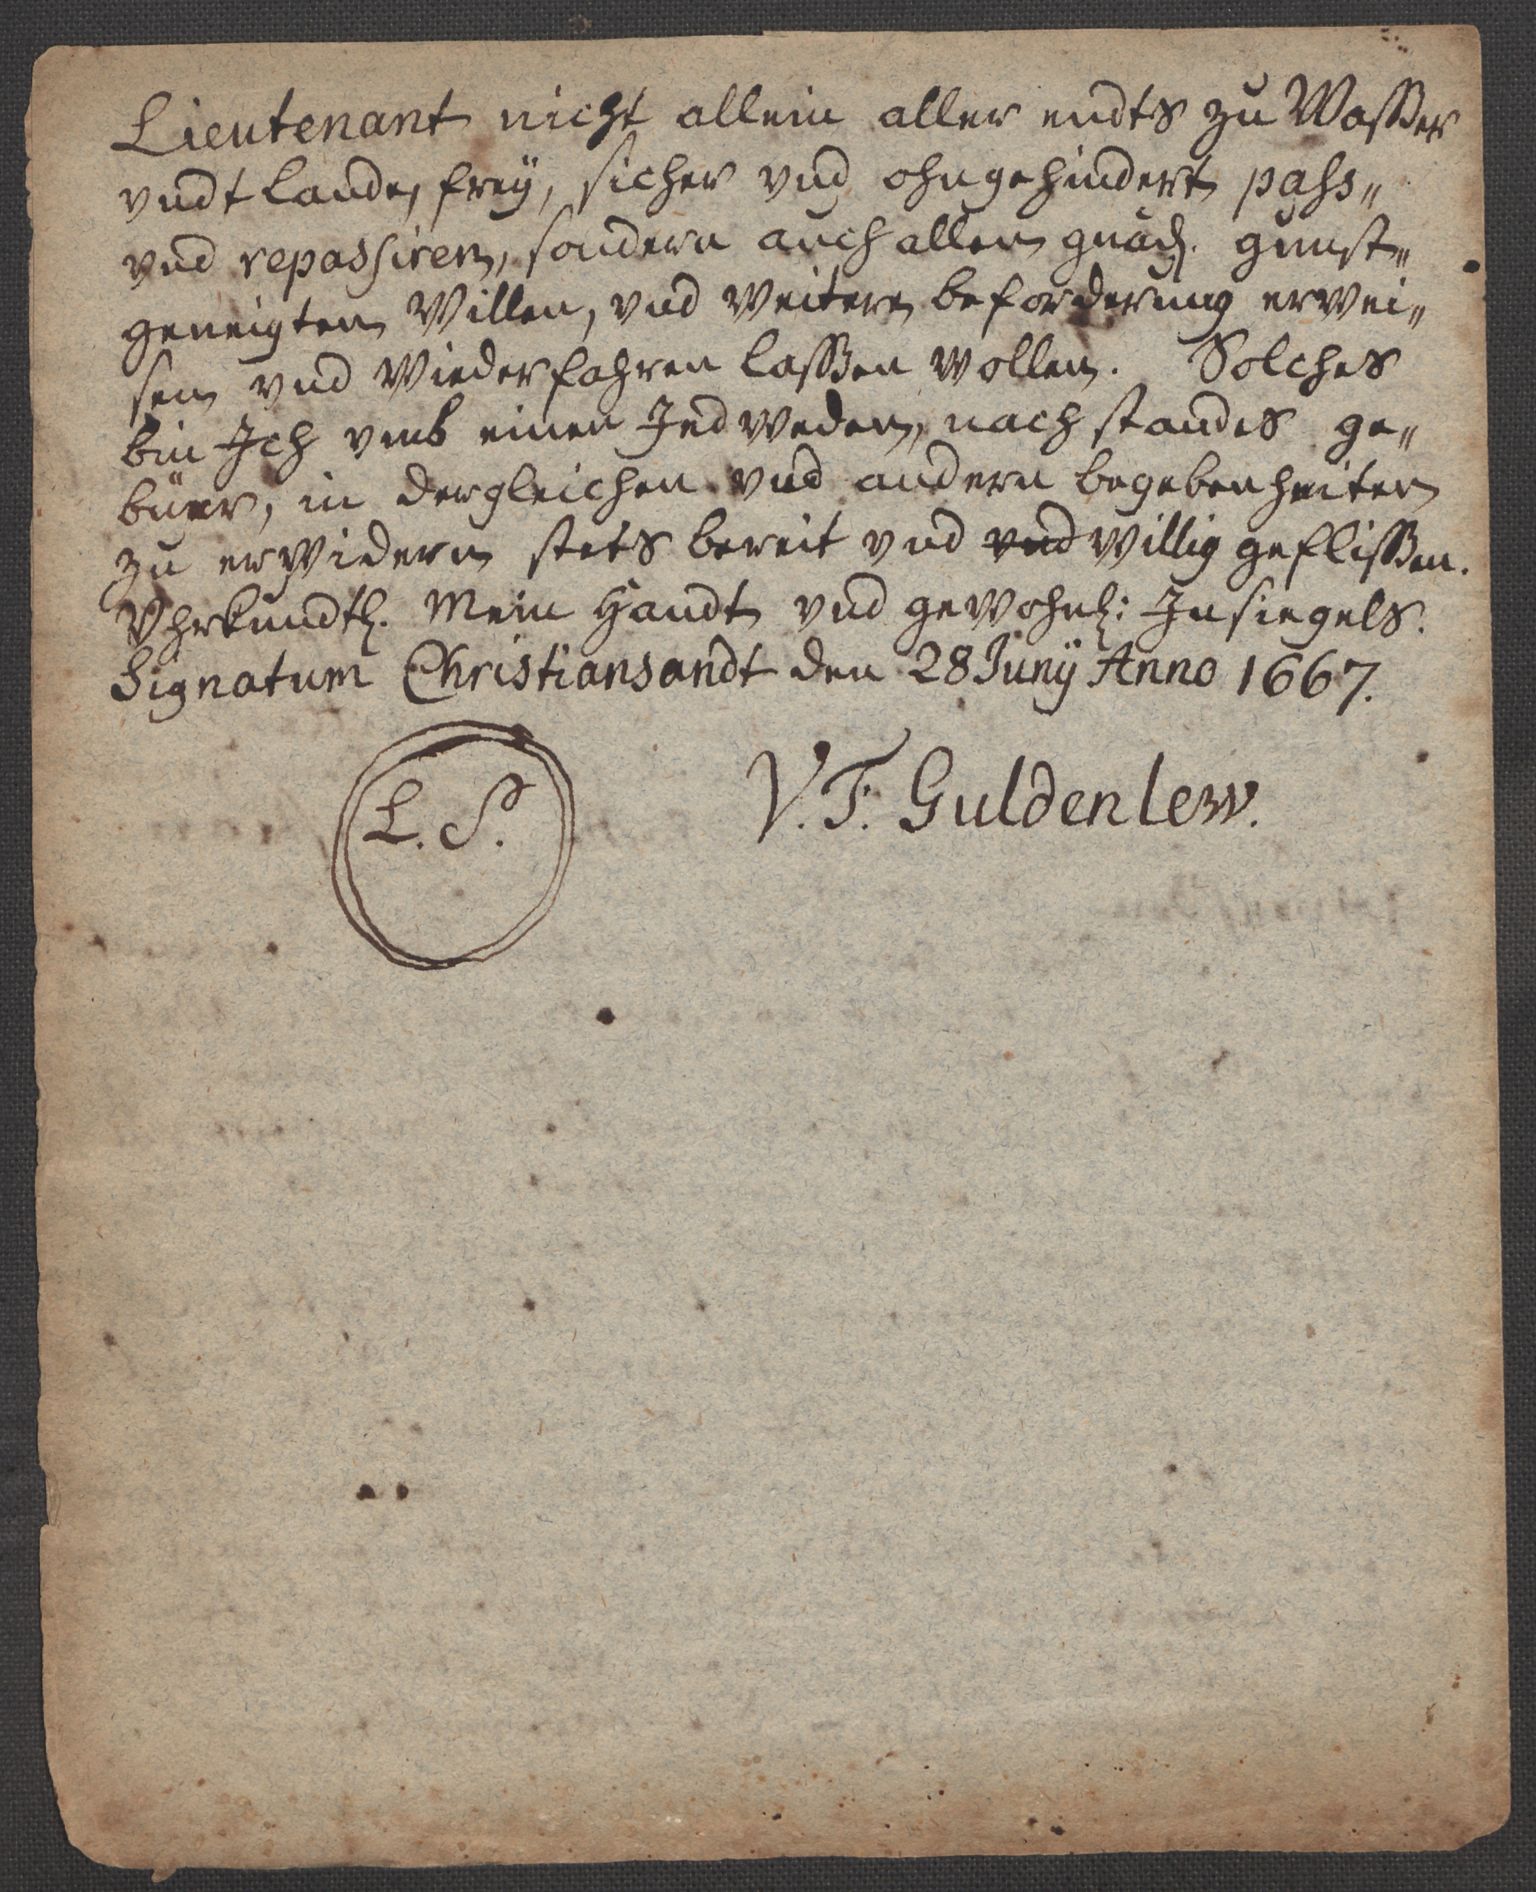 Lieutenant nicht allein aller endts zu Waßer
vndt Lande, frey, sicher vnd ohngehindert pass„
vnd repassiren, sondern auch allen gnäd. gunst„
geneigten Willen, vnd weitere beforderung erwei„
sen vnd wiederfahren laßen wollen. Solches
bin Ich vmb einen Jedweden, nach standes ge„
büer, in dergleichen vnd andern begebenheiten
zu erwidern stets bereit vnd vnd willig geflißen.
Vhrkundtl. Mein Handt vnd gewohnl: Insiegels.
Signatum Christiansandt den 28 Junÿ Anno 1667.
L. S.
V. F. Guldenlew.